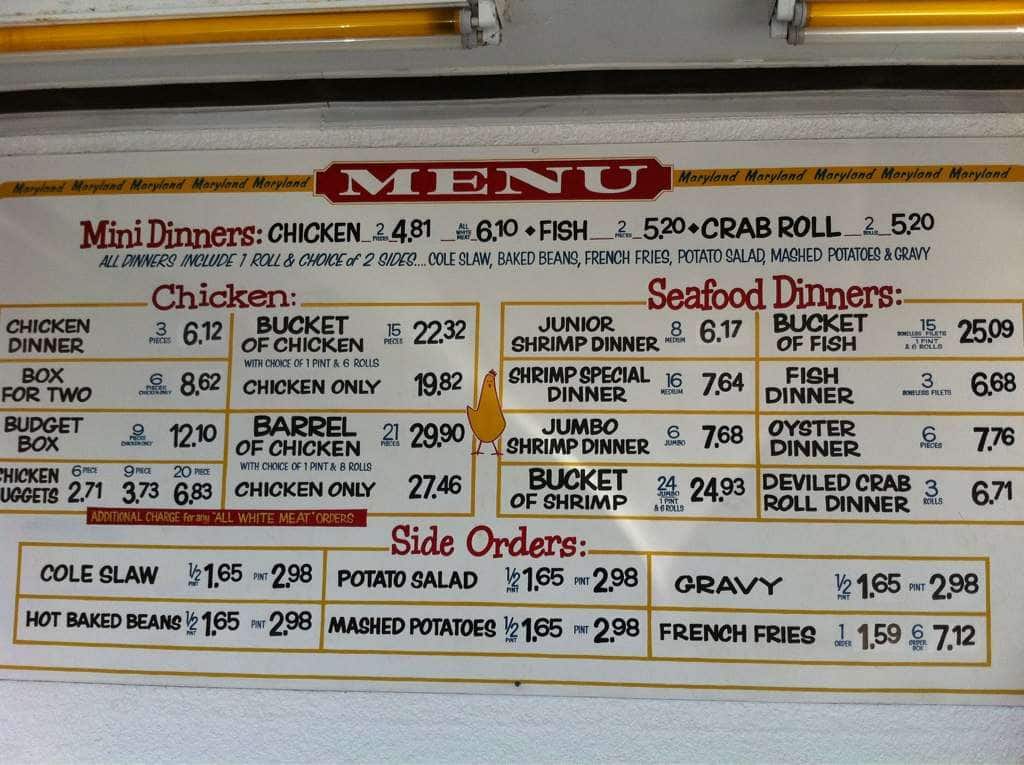 Maryland Maryland Maryland Maryland Maryland MENU Maryland Maryland Maryland Maryland Maryland
Mini Dinners: CHICKEN 2 PIECES 4.81 ALL WHITE MEAT 6.10 • FISH 2 PIECES 5.20 • CRAB ROLL 2 ROLLS 5.20
ALL DINNERS INCLUDE 1 ROLL & CHOICE of 2 SIDES.... COLE SLAW, BAKED BEANS, FRENCH FRIES, POTATO SALAD, MASHED POTATOES & GRAVY
Chicken:
CHICKEN DINNER 3 PIECES 6.12
BOX FOR TWO 6 PIECES CHICKEN ONLY 8.62
BUDGET BOX 9 PIECES CHICKEN ONLY 12.10
CHICKEN NUGGETS 6 PIECE 2.71 9 PIECE 3.73 20 PIECE 6.83
BUCKET OF CHICKEN 15 PIECES 22.32
WITH CHOICE OF 1 PINT & 6 ROLLS
CHICKEN ONLY 19.82
BARREL OF CHICKEN 21 PIECES 29.90
WITH CHOICE OF 1 PINT & 8 ROLLS
CHICKEN ONLY 27.46
ADDITIONAL CHARGE For any "ALL WHITE MEAT" ORDERS
Seafood Dinners:
JUNIOR SHRIMP DINNER 8 MEDIUM 6.17
SHRIMP SPECIAL DINNER 16 MEDIUM 7.64
JUMBO SHRIMP DINNER 6 JUMBO 7.68
BUCKET OF SHRIMP 24 JUMBO 1 PINT & 6 ROLLS 24.93
BUCKET OF FISH 15 BONELESS FILETS 1 PINT & 6 ROLLS 25.09
FISH DINNER 3 BONELESS FILETS 6.68
OYSTER DINNER 6 PIECES 7.76
DEVILED CRAB ROLL DINNER 3 ROLLS 6.71
Side Orders:
COLE SLAW 1/2 PINT 1.65 PINT 2.98
POTATO SALAD 1/2 PINT 1.65 PINT 2.98
GRAVY 1/2 PINT 1.65 PINT 2.98
HOT BAKED BEANS 1/2 PINT 1.65 PINT 2.98
MASHED POTATOES 1/2 PINT 1.65 PINT 2.98
FRENCH FRIES 1 ORDER 1.59 6 ORDER BOX 7.12